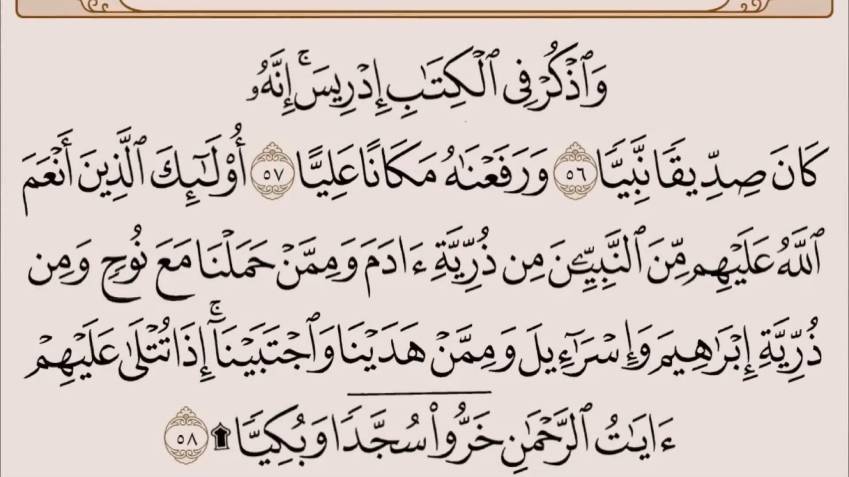 وَٱذۡكُرۡ فِي ٱلۡكِتَٰبِ إِدۡرِيسَۚ إِنَّهُۥ
كَانَ صِدِّيقٗا نَّبِيّٗا ٥٦ وَرَفَعۡنَٰهُ مَكَانًا عَلِيًّا ٥٧ أُوْلَٰٓئِكَ ٱلَّذِينَ أَنۡعَمَ
ٱللَّهُ عَلَيۡهِم مِّنَ ٱلنَّبِيِّـۧنَ مِن ذُرِّيَّةِ ءَادَمَ وَمِمَّنۡ حَمَلۡنَا مَعَ نُوحٖ وَمِن
ذُرِّيَّةِ إِبۡرَٰهِيمَ وَإِسۡرَٰٓءِيلَ وَمِمَّنۡ هَدَيۡنَا وَٱجۡتَبَيۡنَآۚ إِذَا تُتۡلَىٰ عَلَيۡهِمۡ
ءَايَٰتُ ٱلرَّحۡمَٰنِ خَرُّواْۤ سُجَّدٗا وَبُكِيّٗا ۩ ٥٨